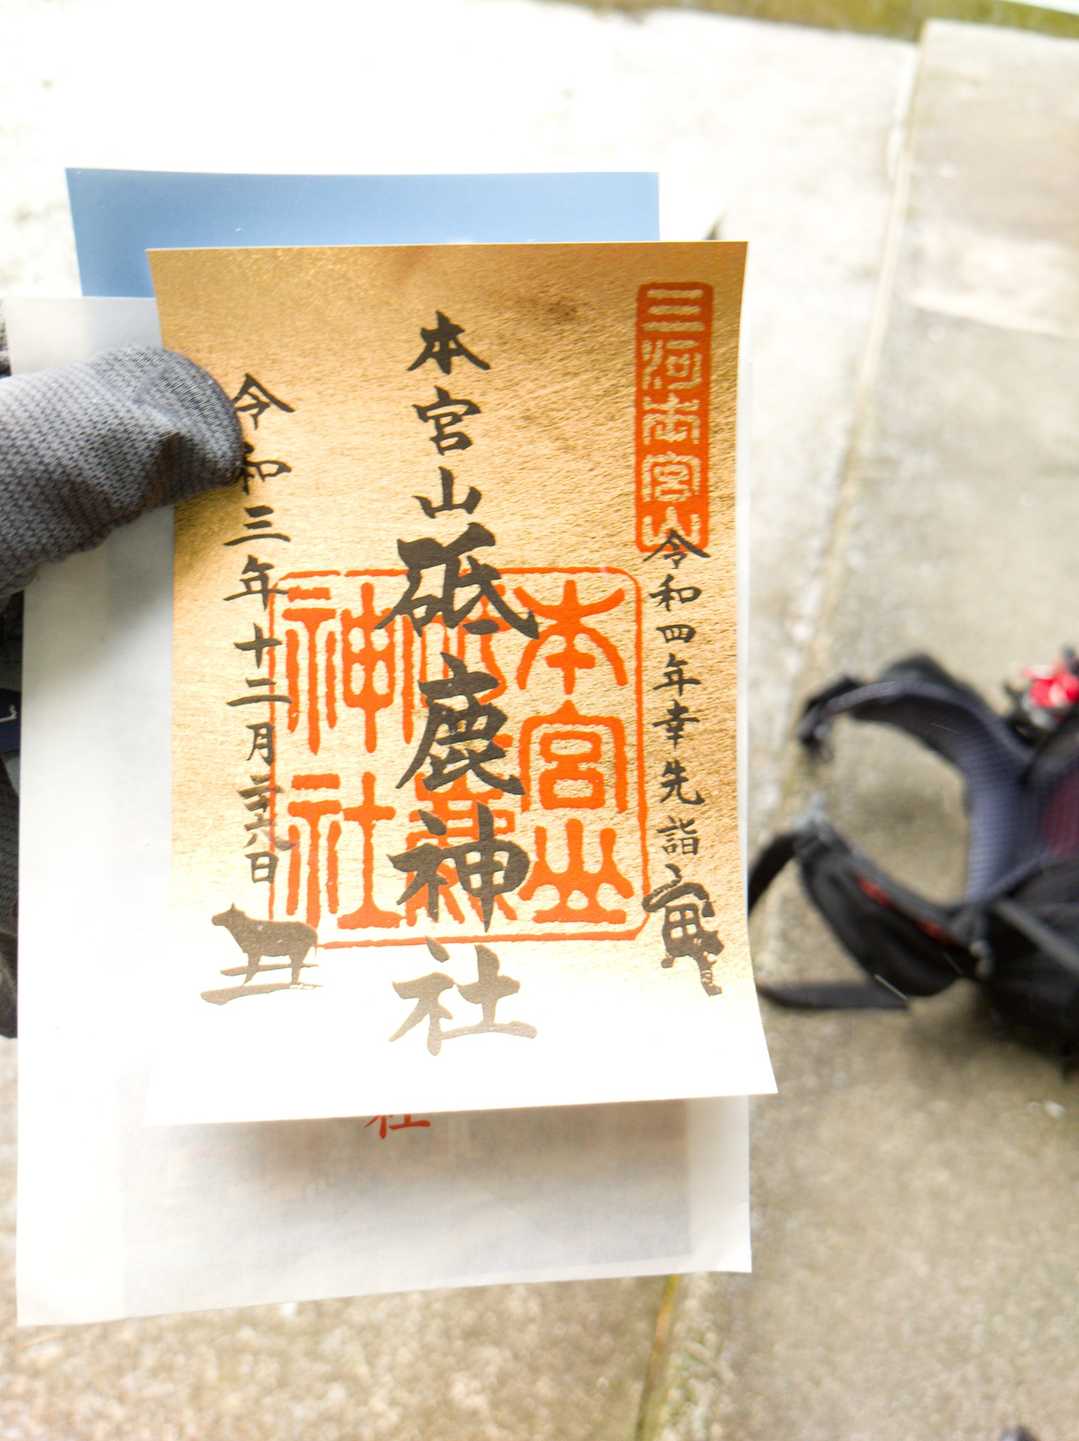 三河本宮山
令和四年幸先詣
寅
本宮山砥鹿神社
本宮山
神社
令和三年十二月二十六日
丑
社